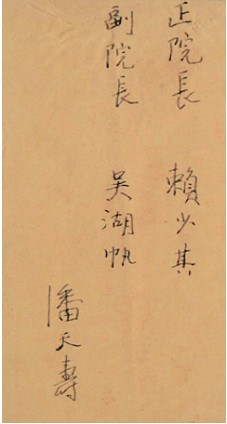 正院長 賴少其
副院長 吳湖帆
潘天壽